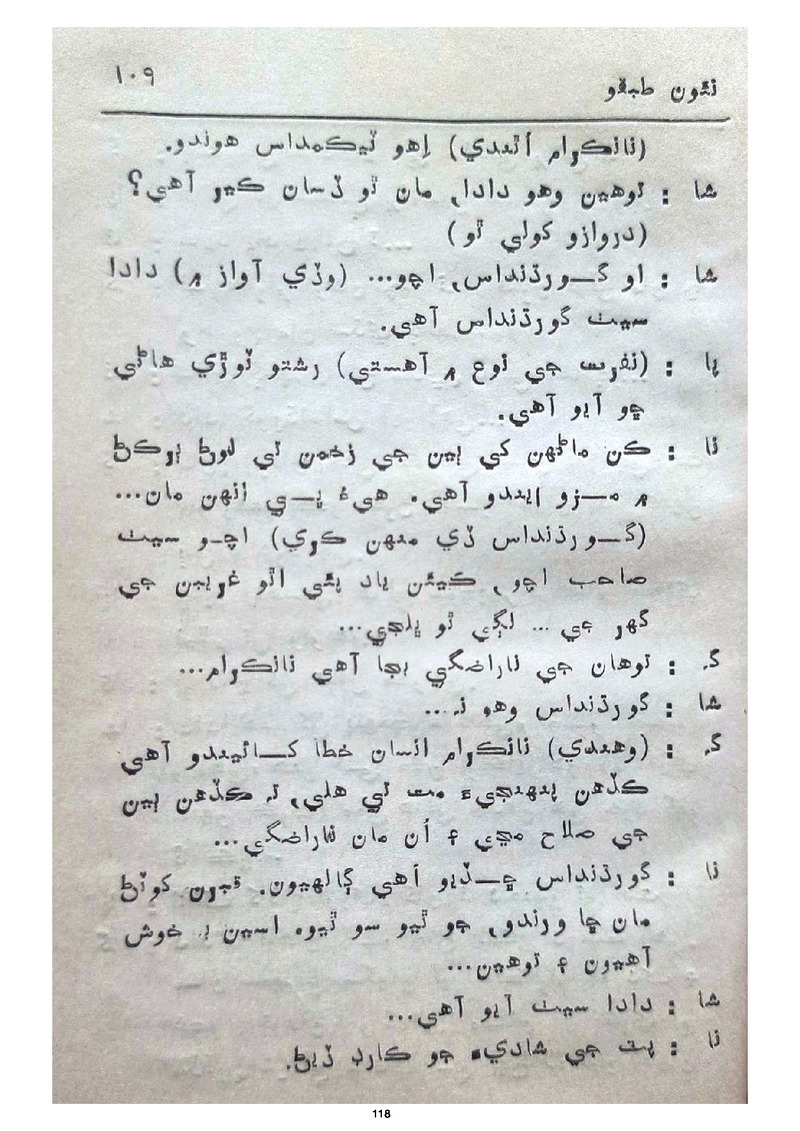 نئون طبقو
١٠٩
(نانڪرام اُٿندي) اِهو ٽيڪمداس هوندو.
شا : توهين وهو دادا، مان ٿو ڏسان ڪير آهي؟
(دروازو کولي ٿو)
شا : او گـــورڌنداس، اچو... (وڏي آواز ۾) دادا
سيٺ گورڌنداس آهي.
پا : (نفرت جي نوع ۾ آهستي) رشتو ٽوڙي هاڻي
ڇو آيو آهي.
نا : ڪن ماڻهن کي ٻين جي زخمن تي لوڻ ٻرڪڻ
۾ مـــزو ايندو آهي. هيءُ پـــي انهن مان...
(گـــورڌنداس ڏي منهن ڪري) اچـو سيٺ
صاحب اچو، ڪيئن ياد پئي اٿو غريبن جي
گهر جي... لڳي ٿو ڀلجي...
گ : توهان جي ناراضگي بجا آهي نانڪرام...
شا : گورڌنداس وهو نہ...
گ : (وهندي) نانڪرام انسان خطا کـــائيندو آهي
ڪڏهن پنهنجيءَ مت تي هلي، تہ ڪڏهن ٻين
جي صلاح مڃي ۽ اُن مان ناراضگي...
نا : گورڌنداس ڇـــڏيو اُهي ڳالهيون. قبرن کوٽڻ
مان ڇا ورندو، جو ٿيو سو ٿيو. اسين بہ خوش
آهيون ۽ توهين...
شا : دادا سيٺ آيو آهي...
نا : پٽ جي شاديءَ جو ڪارڊ ڏيڻ.
118